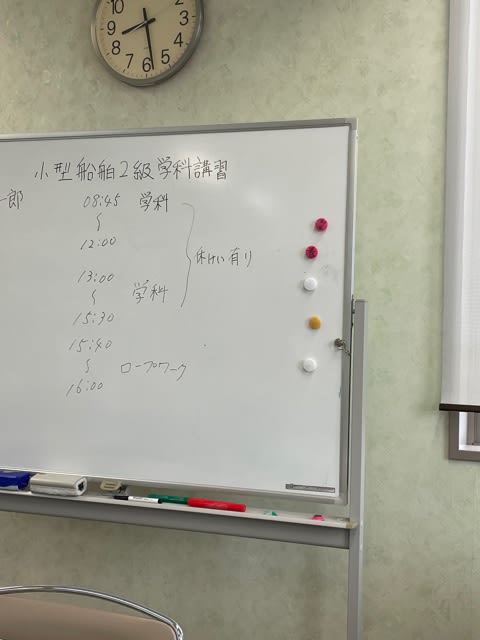 10
2
9
3
8
4
7
5
6
小型船舶2級学科講習
郎
08:45 学科
〜
12:00
休けい有り
13:00
〜 学科
15:30
15:40
〜 ロープワーク
16:00